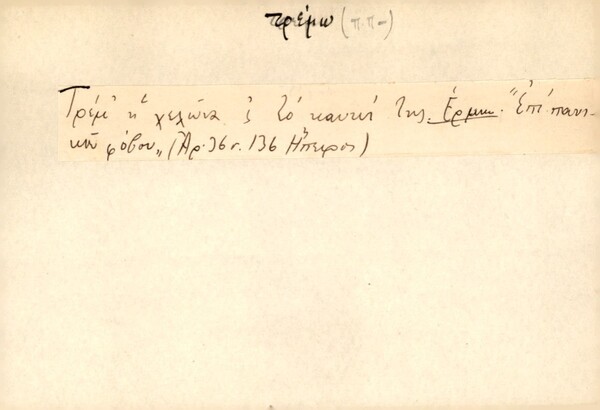 τρέμω (π.π-)
Τρέμ' ἡ χελώνα 'ς τὸ καυκί της. Ἑρμην. "Ἐπὶ πανι-
κοῦ φόβου" (Ἀρ. 36 σ. 136 Ἤπειρος)